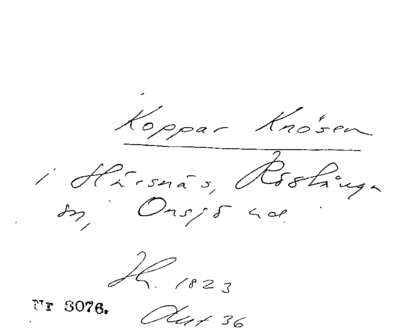 Koppar Knösen
i Härsnäs, Röstånga
sn, Onsjö hd.
H. 1823
Nr 3076.
36